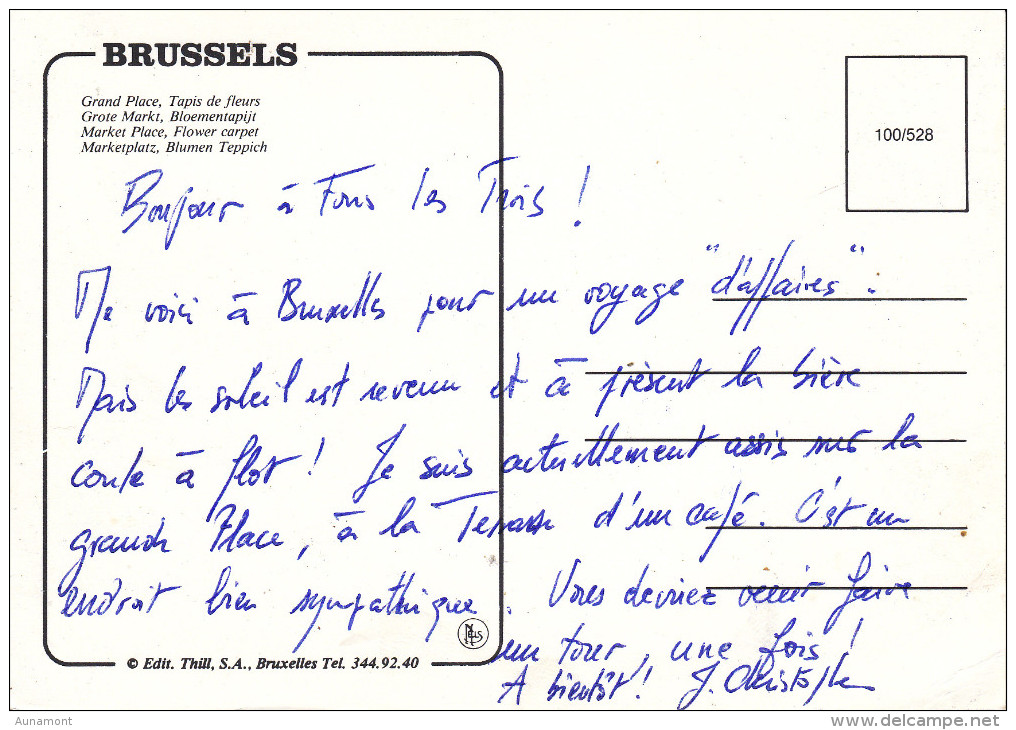 BRUSSELS
Grand Place, Tapis de fleurs
Grote Markt, Bloementapijt
Market Place, Flower carpet
Marketplatz, Blumen Teppich
100/528
Bonjour à Tous les Trois !
Me voici à Bruxelles pour un voyage "d'affaires".
Mais le soleil est revenu et à présent la bière
coule à flot ! Je suis actuellement assis sur la
grande Place, à la Terrasse d'un café. C'est un
endroit bien sympathique. Vous devriez venir faire
un tour, une fois !
A bientôt ! J. Christophe
NELS
© Edit. Thill, S.A., Bruxelles Tel. 344.92.40
Aunamont
www.delcampe.net